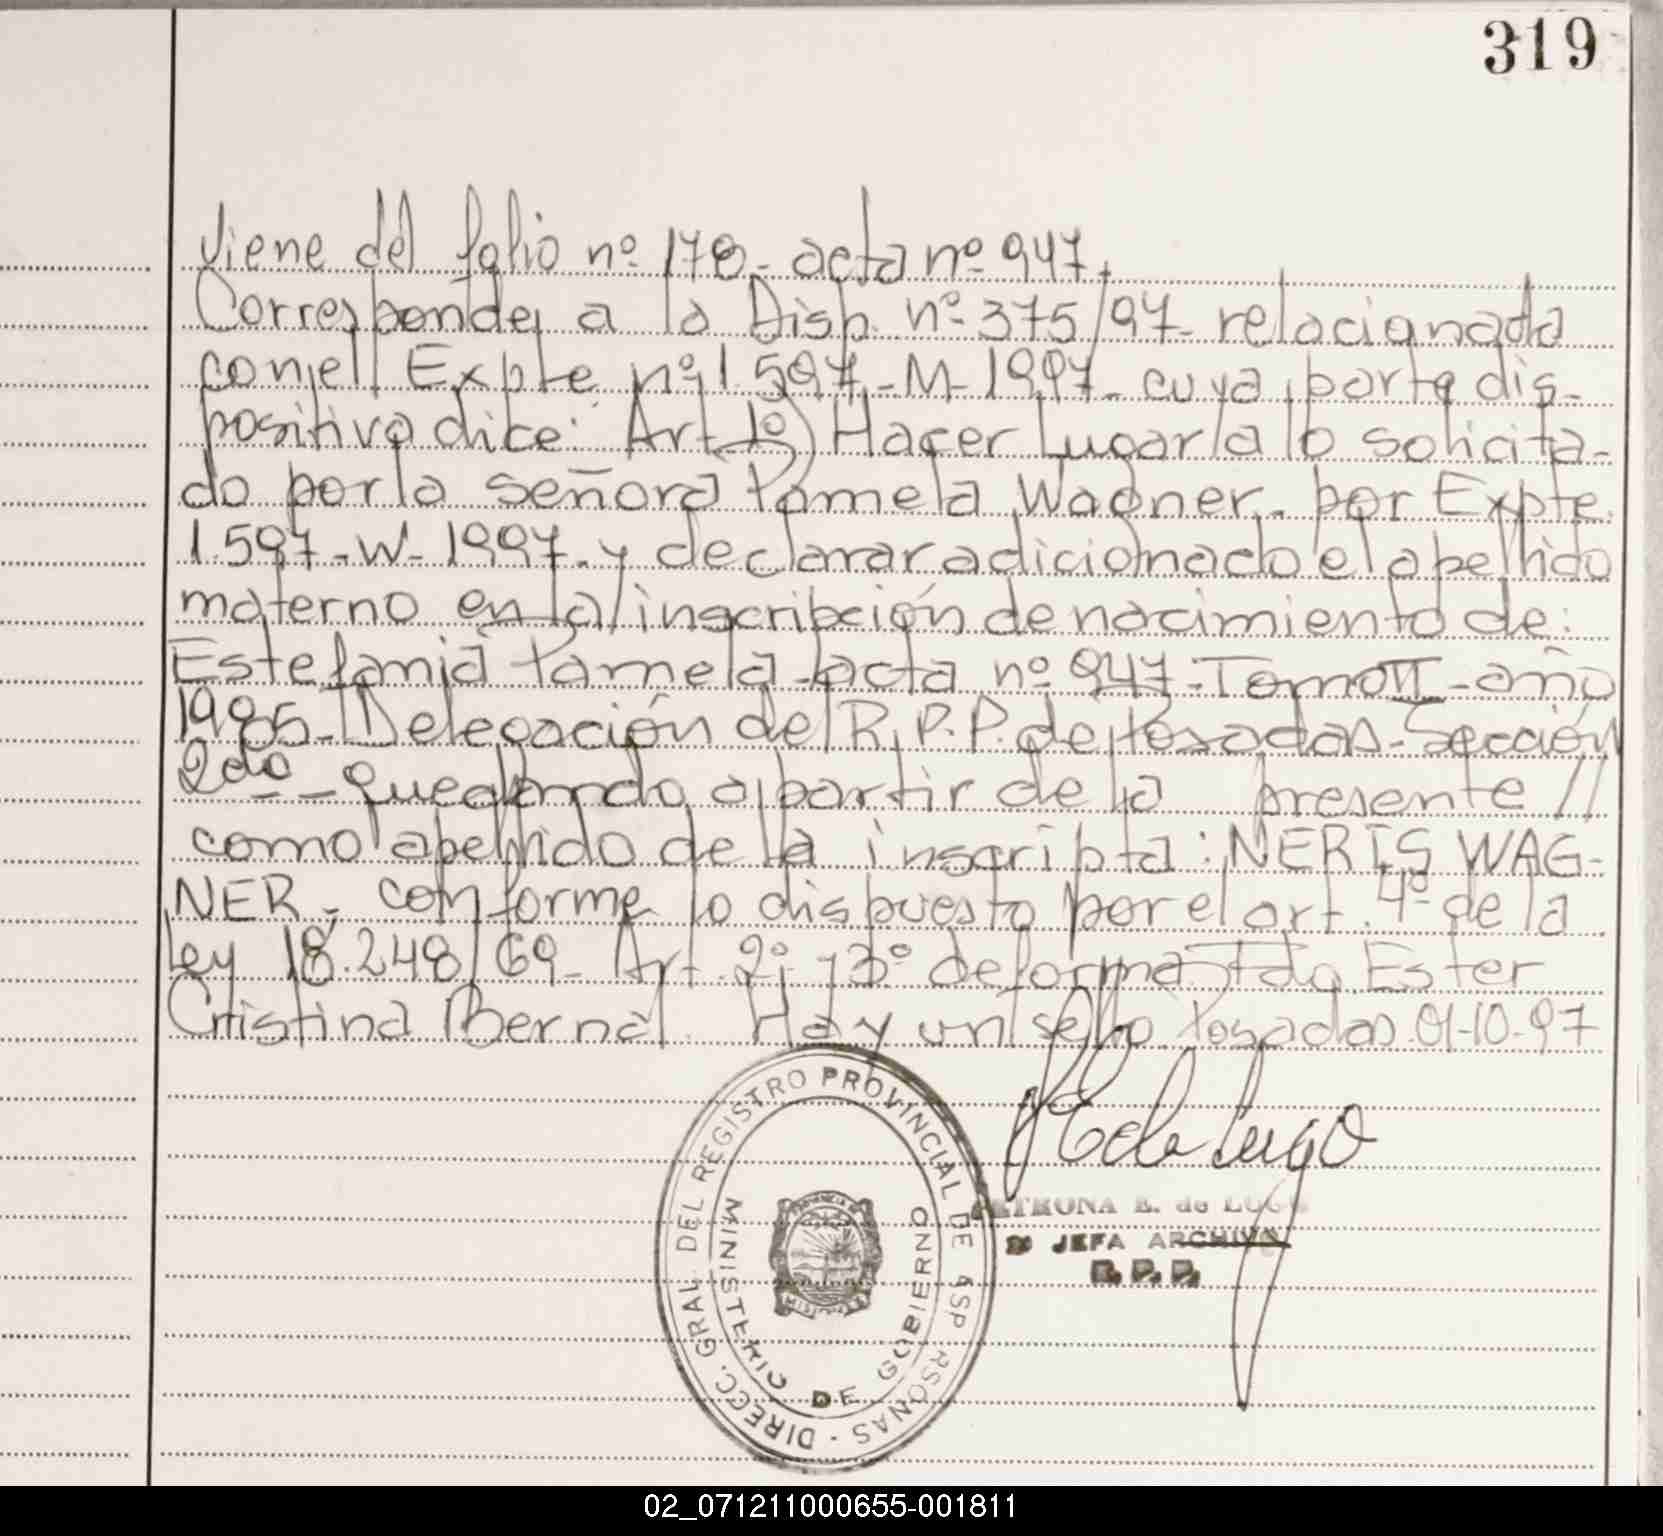 319
Viene del folio nº 170- acta nº 947.
Corresponde a la Disp. nº 375/97- relacionada
con el Expte nº 1.597-M-1997- cuya parte dis-
positiva dice: Art 1º) Hacer Lugar a lo solicita-
do por la señora Pamela Wagner- por Expte.
1.597-W-1997- y declarar adicionado el apellido
materno en la inscripción de nacimiento de:
Estefania Pamela- acta nº 947- Tomo II- año
1995- Delegación del R.P.P. de Posadas- Sección
2da- Quedando a partir de la presente //
como apellido de la inscripta: NERIS WAG-
NER- conforme lo dispuesto por el art. 4º de la
Ley 18.248/69- Art. 2º y 3º de forma Fdo Ester
Cristina Bernal. Hay un sello Posadas 01-10-97
DIRECC. GRAL DEL REGISTRO PROVINCIAL DE
MINISTERIO DE GOBIERNO
PETRONA E. de LUGO
JEFA ARCHIVO
R.P.P.
02_071211000655-001811